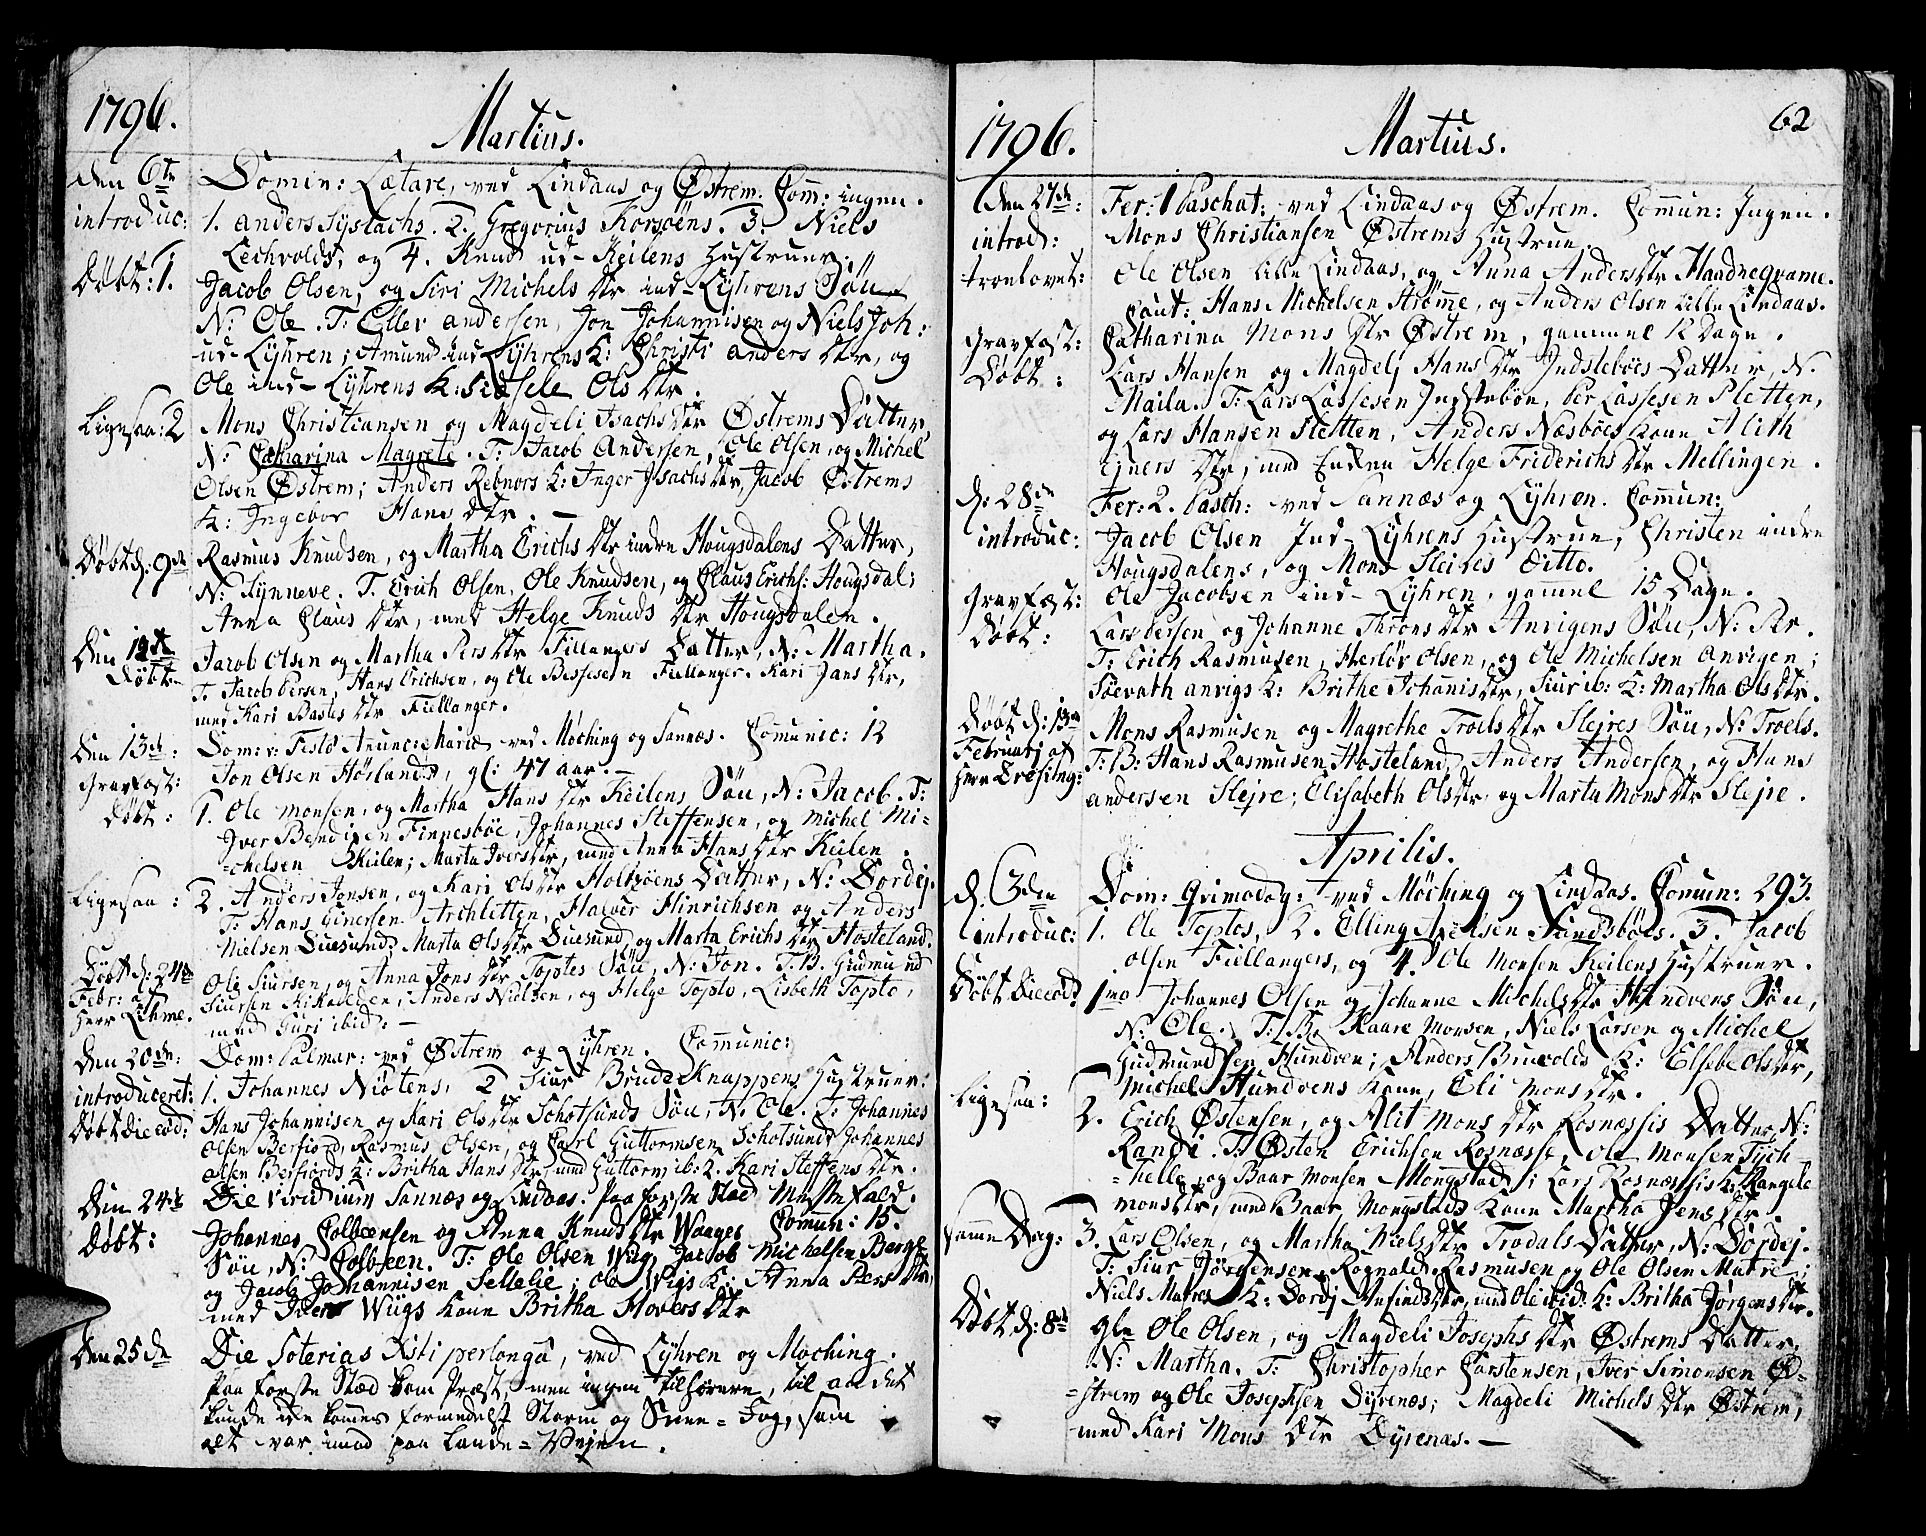 1796.
Martius.
den 6te Domin: Lætare, ved Lindaas og Østrem. Com̃: ingen.
introduc: 1. Anders Syslachs. 2. Gregorius Korsøens. 3. Niels
Lechvolds, og 4. Knud ud-Keilens Hustruer.
Døbt: 1. Jacob Olsen, og Siri Michels dtr ind-Lÿhrens Søn
N: Ole. T: Eller Andersen, Jon Johannisen og Niels Joh:
ud-Lÿhren; Amund ind Lÿhrens K: Christi Anders dtr, og
Ole ind-Lÿhrens K: Sidsele Ols dtr.
Ligesaa: 2 Mons Christiansen og Magdeli Isachs dtr Østrems Datter
N: Catharina Magrete. T: Jacob Andersen, Ole Olsen, og Michel
Olsen Østrem; Anders Rebnors K: Inger Isachs dtr, Jacob Østrems
K: Ingebor Hans dtr. —
Døbt d: 9de Rasmus Knudsen, og Martha Erichs dtr indre Hougsdalens Datter,
N: Synneve. T. Erich Olsen, Ole Knudsen, og Claus Erichs: Hougsdal;
Anna Claus dtr, med Helge Knuds dtr Hougsdalen.
Den 12te Jacob Olsen og Martha Pers dtr Fillangers Datter, N: Martha.
Døbt T. Jacob Persen, Hans Erichsen, og Ole Bessesen Fiellanger. Kari Jans dtr,
med Kari Bastes dtr Fiellanger.
Den 13de: Dom: v: Festo Anunc: Mariæ ved Møching og Sannæs. Com̃unic: 12
Gravfæst: Jon Olsen Hørlands, gl: 47 aar. —
Døbt: 1. Ole Monsen, og Martha Hans dtr Keilens Søn, N: Jacob. T:
Iver Bendixen Finnesbøe, Johannes Steffensen, og Michel Mi=
=chelsen Keilen; Marta Ivers dtr, med Anna Hans dtr Keilen.
Ligesaa: 2. Anders Jonsen, og Kari Ols dtr Holtzøens Datter, N: Dordej.
T: Hans Einersen Archletten, Halvor Hinrichsen og Anders
Nielsen Duesund; Marta Ols dtr Duesund, og Marta Erichs dtr Hosteland.
Døbt d: 24de Ole Siursen, og Anna Jons dtr Toptes Søn, N: Jon. T. B. Gudmund
Febr: af Siursen Kikallen, Anders Nielsen, og Helge Topto, Lisbeth Topto,
Herr Lehme. med Guri ibid: —
Den 20de: Dom: Palmar: ved Østrem og Lÿhren. Com̃unic:
introduceret: 1. Johannes Niøtens, 2 Siur Brude Knappens Hustruer.
Døbt die eod: Hans Johannisen og Kari Ols dtr Schotsunds Søn, N: Ole. T: Johannes
Olsen Berfiord, Rasmus Olsen, og Carl Guttormsen Schotsund; Johannes
Olsen Berfiords K: Britha Hans dtr, med Guttorm ib: 2. Kari Steffens dtr.
Den 24de Die viridium Sannæs og Lindaas. paa første Stæd Messefald.
Døbt: Johannes Colbeensen og Anna Knuds dtr Waages Com̃un: 15.
Søn, N: Colbeen. T: Ole Olsen Wüg, Jacob Michelsen Berge
og Jacob Johannisen Sellelie; Ole Wigs K: Anna Pers dtr,
med Iver Wügs Kone Britha Hovers dtr
Den 25de Die Soterias Xsti perlonga, ved Lÿhren og Moching.
paa første Stæd kom Præst, men ingen tilhørere, til at det
kunde ikke kom̃es formedelst Storm og Snee-Fog, som
alt var imod paa Lande-Vejen.
1796.
Martius.
62
Den 27de: Fer: 1 Paschat: ved Lindaas og Østrem. Com̃un: Ingen.
introd: Mons Christiansen Østrems Hustrue.
trovlovet: Ole Olsen Lille Lindaas, og Anna Anders dtr Haadneqvame.
Caut: Hans Michelsen Strømme, og Anders Olsen Lille Lindaas.
Gravfæst: Catharina Mons dtr Østrem, gammel 12 Dage.
Døbt: Lars Hansen og Magdelj Hans dtr Indstebøes Datter, N.
Maila. T: Lars Lassesen Indstebøe, Per Lassesen Sletten,
og Lars Hansen Sletten, Anders Næsbøes Kone Alith
Ejners dtr, med Enken Helge Friderichs dtr Mellingen.
d: 28de Fer: 2. Pasch: ved Sannæs og Lÿhren. Com̃un:
introduc: Jacob Olsen Ind-Lÿhrens Hustrue, Christen indre
Hougsdalens, og Mons Sleires ditto.
Gravfæst: Ole Jacobsen ind-Lÿhren, gam̃el 15 Dage.
Døbt: Lars Persen og Johanne Throns dtr Anvigens Søn, N: Per.
T: Erich Rasmusen, Herlöv Olsen, og Ole Michelsen Anvigen;
Soevath Anvigs K: Brithe Johanis dtr, Siur ib: K: Martha Ols dtr.
Døbt d: 13de Mons Rasmusen og Magrethe Troels dtr Slejres Søn, N: Troels.
Februarij af T: B: Hans Rasmusen Hosteland, Anders Andersen, og Hans
Herr Dresing: Andersen Slejre; Elisabeth Ols dtr og Marta Mons dtr Slejre.
Aprilis.
d: 3den Dom: Qvimodog: ved Møching og Lindaas. Com̃un: 293.
introduc: 1. Ole Toptos, 2. Elling Nielsen Sundsbøes. 3. Jacob
Olsen Fiellangers, og 4. Ole Monsen Keilens Hustruer.
Døbt die eod. 1mo Johannes Olsen og Johanne Michels dtr Hundvens Søn,
N: Ole. T: B. Kaare Monsen, Niels Larsen og Michel
Gudmundsen Hundven; Anders Bruvolds K: Elsebe Ols dtr,
Michel Hundvens Kone, Eli Mons dtr.
Ligesaa: 2. Erich Østensen, og Alit Mons dtr Rosnæssis Datter, N:
Randi. T: Østen Erichsen Rosnæsse, Ole Monsen Tych=
=helle, og Baar Monsen Mongstad; Lars Rosnæssis K: Rangele
Mons dtr, med Baar Mongstads Kone Martha Jens dtr.
sam̃e Dag: 3. Lars Olsen, og Martha Niels dtr Trodals Datter, N: Dordej.
T: Siur Jørgensen, Rognald Rasmusen og Ole Olsen Matre;
Niels Matres K: Dordj Ansinds dtr, med Ole ibid: K: Britha Jørgens dtr.
Døbt d: 8de gle Ole Olsen, og Magdeli Josephs dtr Østrems Datter,
N: Martha. T: Christopher Carstensen, Iver Simonsen Ø=
=strem og Ole Josephsen Dÿrenæs; Magdeli Michels dtr Østrem,
med Kari Mons dtr Dÿrenæs. —